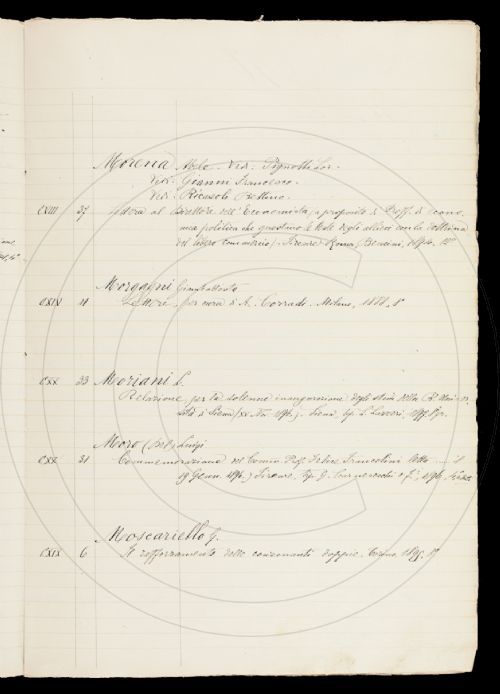 Morena Abele. Vedi. Pignotti Lor.
Vedi. Gianni Francesco.
Vedi. Ricasoli Bettino.
CXIII 37 Lettera al Direttore dell'Economista, a proposito di Proff. di Econo
mia politica che guastano le teste degli allievi con la dottrina
del libero commercio. - Firenze Roma, Bencini, 12°
Morgagni Giambattista
CXIV Lettere, per cura di A. Corradi. Milano, 1888, 8°
CXX 33 Moriani L.
Relazione per la solenne inaugurazione degli studi della R. Univer-
sità di Siena (XV Nov. 1896). Siena, tip. L. Lazzeri, 1897
Moro (Dal) Luigi
CXX 31 Commemorazione del Comm. Prof. Felice Francolini letta il
19 Genn. 1896. Firenze, tip. G. Carnesecchi e f.i, 1896,
Moscariello G.
CXIX 6 Il rafforzamento delle consonanti doppie. 1895. 8°